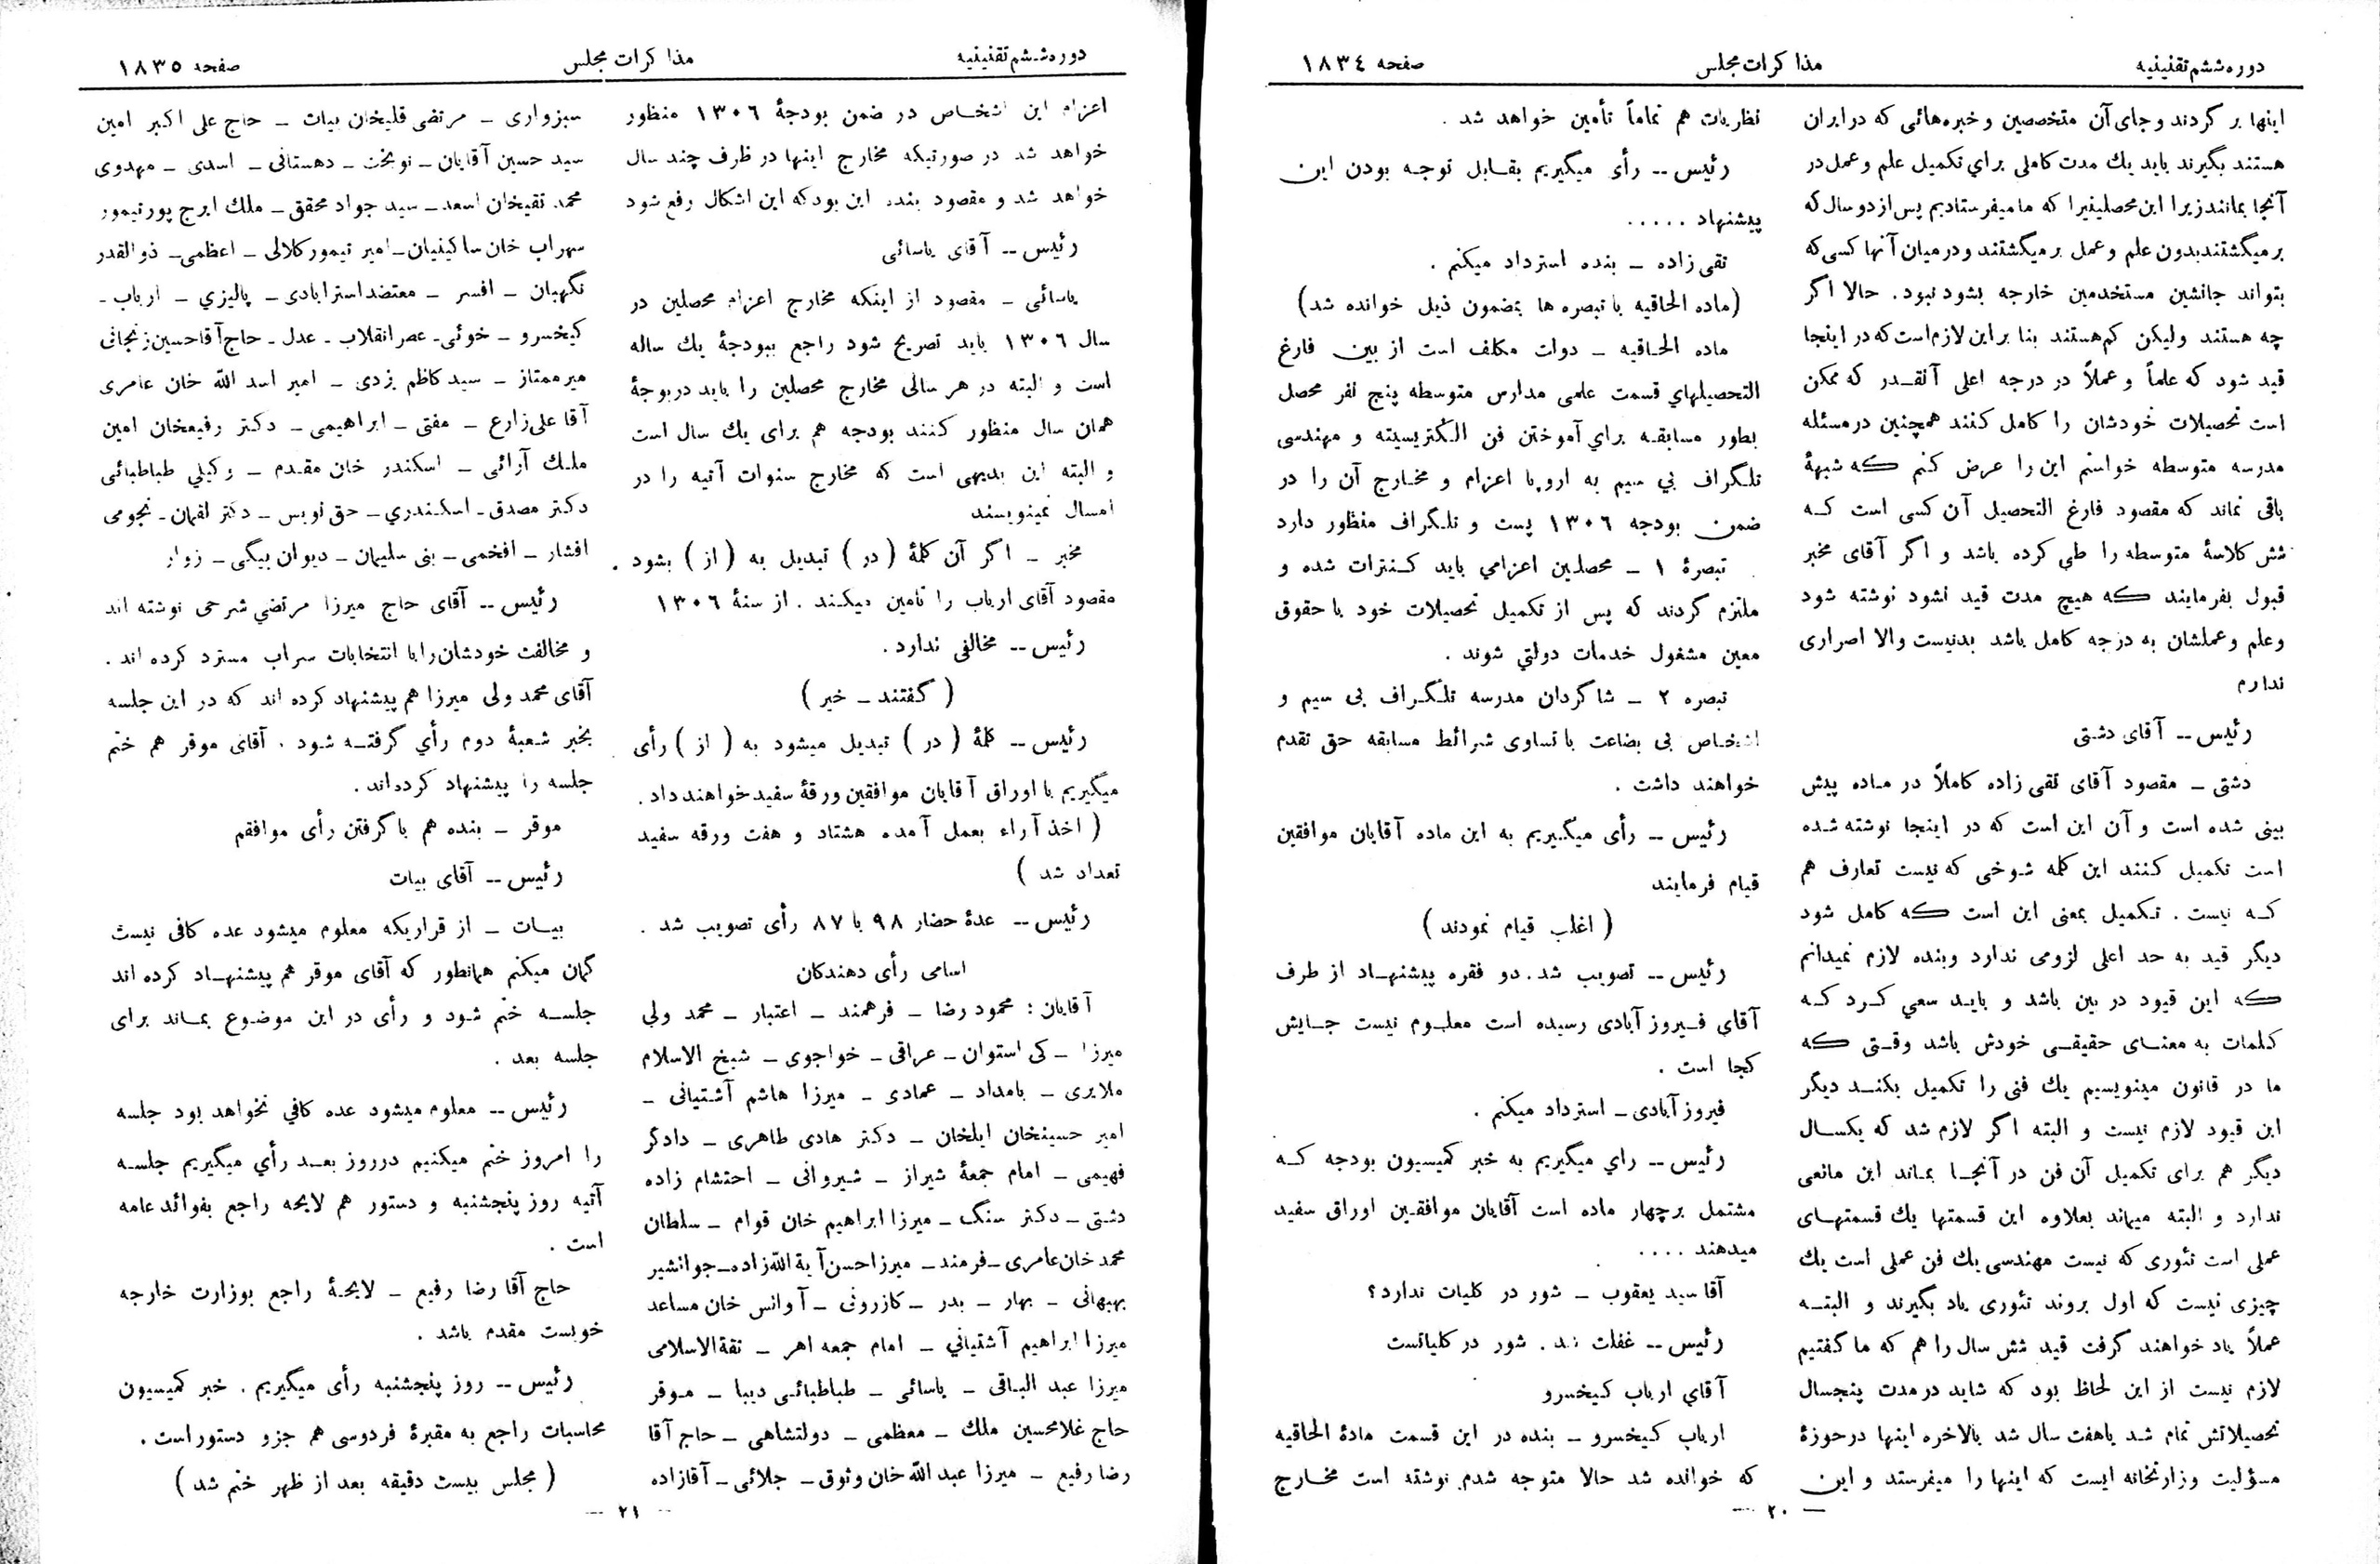 دوره ششم تقنینیه
مذاکرات مجلس
صفحه ۱۸۳۴
اینها بر گردند و جای آن متخصصین و خبره‌هائی که در ایران
هستند بگیرند باید یك مدت کاملی برای تکمیل علم و عمل در
آنجا بمانند زیرا این محصلینیرا که ما میفرستادیم پس از دو سال که
بر میگشتند بدون علم و عمل بر میگشتند و در میان آنها کسی که
بتواند جانشین مستخدمین خارجه بشود نبود. حالا اگر
چه هستند ولیکن کم هستند بنا بر این لازم است که در اینجا
قید شود که علماً و عملاً در درجه اعلی آنقـدر که ممکن
است تحصیلات خودشان را کامل کنند همچنین در مسئله
مدرسه متوسطه خواستم این را عرض کنم که شبهۀ
باقی نماند که مقصود فارغ التحصیل آن کسی است که
شش کلاسۀ متوسطه را طی کرده باشد و اگر آقای مخبر
قبول بفرمایند که هیچ مدت قید نشود نوشته شود
و علم و عملشان به درجه کامل باشد بدنیست والا اصراری
ندارم
رئیس -- آقای دشتی
دشتی - مقصود آقای تقی زاده کاملاً در ماده پیش
بینی شده است و آن این است که در اینجا نوشته شده
است تکمیل کنند این کلمه شوخی که نیست تعارف هم
که نیست. تکمیل بمعنی این است که کامل شود
دیگر قید به حد اعلی لزومی ندارد و بنده لازم نمیدانم
که این قیود در بین باشد و باید سعی کرد که
کلمات به معنای حقیقی خودش باشد وقتی که
ما در قانون مینویسیم یك فنی را تکمیل بکند دیگر
این قیود لازم نیست و البته اگر لازم شد که یکسال
دیگر هم برای تکمیل آن فن در آنجا بماند این مانعی
ندارد و البته میماند بعلاوه این قسمتها یك قسمتهای
عملی است تئوری که نیست مهندسی یك فن عملی است یك
چیزی نیست که اول بروند تئوری یاد بگیرند و البته
عملاً یاد خواهند گرفت قید شش سال را هم که ما گفتیم
لازم نیست از این لحاظ بود که شاید در مدت پنجسال
تحصیلاتش تمام شد یا هفت سال شد بالاخره اینها در حوزۀ
مسؤلیت وزارتخانه ایست که اینها را میفرستد و این
نظریات هم تماماً تأمین خواهد شد.
رئیس -- رأی میگیریم بقابل توجه بودن این
پیشنهاد .....
تقی زاده - بنده استرداد میکنم.
(ماده الحاقیه با تبصره ها بمضمون ذیل خوانده شد)
ماده الحاقیه - دولت مکلف است از بین فارغ
التحصیلهای قسمت علمی مدارس متوسطه پنج نفر محصل
بطور مسابقه برای آموختن فن الکتریسیته و مهندسی
تلگراف بی سیم به اروپا اعزام و مخارج آن را در
ضمن بودجه ۱۳۰۶ پست و تلگراف منظور دارد
تبصرۀ ۱ - محصلین اعزامی باید کنترات شده و
ملتزم گردند که پس از تکمیل تحصیلات خود با حقوق
معین مشغول خدمات دولتی شوند.
تبصره ۲ - شاگردان مدرسه تلگراف بی سیم و
اشخاص بی بضاعت با تساوی شرائط مسابقه حق تقدم
خواهند داشت.
رئیس -- رأی میگیریم به این ماده آقایان موافقین
قیام فرمایند
(اغلب قیام نمودند)
رئیس -- تصویب شد. دو فقره پیشنهاد از طرف
آقای فیروز آبادی رسیده است معلوم نیست جایش
کجا است.
فیروز آبادی - استرداد میکنم.
رئیس -- رای میگیریم به خبر کمیسیون بودجه که
مشتمل بر چهار ماده است آقایان موافقین اوراق سفید
میدهند ....
آقا سید یعقوب - شور در کلیات ندارد؟
رئیس -- غفلت شد. شور در کلیاتست
آقای ارباب کیخسرو
ارباب کیخسرو - بنده در این قسمت مادۀ الحاقیه
که خوانده شد حالا متوجه شدم نوشته است مخارج
- ۲۰ -
دوره ششم تقنینیه
مذاکرات مجلس
صفحه ۱۸۳۵
اعزام این اشخاص در ضمن بودجۀ ۱۳۰۶ منظور
خواهد شد در صورتیکه مخارج اینها در ظرف چند سال
خواهد شد و مقصود بنده این بود که این اشکال رفع شود
رئیس -- آقای یاسائی
یاسائی - مقصود از اینکه مخارج اعزام محصلین در
سال ۱۳۰۶ باید تصریح شود راجع ببودجۀ یك ساله
است و البته در هر سالی مخارج محصلین را باید در بوجۀ
همان سال منظور کنند بودجه هم برای یك سال است
و البته این بدیهی است که مخارج سنوات آتیه را در
امسال نمینویسند
مخبر - اگر آن کلمۀ (در) تبدیل به (از) بشود.
مقصود آقای ارباب را تأمین میکند. از سنۀ ۱۳۰۶
رئیس -- مخالفی ندارد.
(گفتند - خیر)
رئیس -- کلمۀ (در) تبدیل میشود به (از) رأی
میگیریم با اوراق آقایان موافقین ورقۀ سفید خواهند داد.
(اخذ آراء بعمل آمده هشتاد و هفت ورقه سفید
تعداد شد)
رئیس -- عدۀ حضار ۹۸ با ۸۷ رأی تصویب شد.
اسامی رأی دهندگان
آقایان: محمود رضا - فرهمند - اعتبار - محمد ولی
میرزا - کی استوان - عراقی - خواجوی - شیخ الاسلام
ملایری - بامداد - عمادی - میرزا هاشم آشتیانی -
امیر حسینخان ایلخان - دکتر هادی طاهری - دادگر
فهیمی - امام جمعۀ شیراز - شیروانی - احتشام زاده
دشتی - دکتر سنگ - میرزا ابراهیم خان قوام - سلطان
محمد خان عامری - فرمند - میرزا حسن آیة الله زاده - جوانشیر
بهبهانی - بهار - بدر - کازرونی - آوانس خان مساعد
میرزا ابراهیم آشتیانی - امام جمعه اهر - ثقة الاسلامی
میرزا عبد الباقی - یاسائی - طباطبائی دیبا - موقر
حاج غلامحسین ملك - معظمی - دولتشاهی - حاج آقا
رضا رفیع - میرزا عبد الله خان وثوق - جلائی - آقازاده
سبزواری - مرتضی قلیخان بیات - حاج علی اکبر امین
سید حسین آقایان - نوبخت - دهستانی - اسدی - مهدوی
محمد تقیخان اسعد - سید جواد محقق - ملك ایرج پور تیمور
سهراب خان ساکینیان - امیر تیمور کلالی - اعظمی - ذو القدر
نگهبان - افسر - معتضد استرابادی - پالیزی - ارباب -
کیخسرو - خوئی - عصر انقلاب - عدل - حاج آقا حسین زنجانی
میر ممتاز - سید کاظم یزدی - امیر اسد الله خان عامری
آقا علی زارع - مفتی - ابراهیمی - دکتر رفیعخان امین
ملك آرائی - اسکندر خان مقدم - وکیلی طباطبائی
دکتر مصدق - اسکندری - حق نویس - دکتر لقمان - نجومی
افشار - افخمی - بنی سلیمان - دیوان بیگی - زوار
رئیس -- آقای حاج میرزا مرتضی شرحی نوشته اند
و مخالفت خودشان را با انتخابات سراب مسترد کرده اند.
آقای محمد ولی میرزا هم پیشنهاد کرده اند که در این جلسه
بخبر شعبۀ دوم رأی گرفته شود. آقای موقر هم ختم
جلسه را پیشنهاد کرده‌اند.
موقر - بنده هم با گرفتن رأی موافقم
رئیس -- آقای بیات
بیات - از قراریکه معلوم میشود عده کافی نیست
گمان میکنم همانطور که آقای موقر هم پیشنهاد کرده اند
جلسه ختم شود و رأی در این موضوع بماند برای
جلسه بعد.
رئیس -- معلوم میشود عده کافی نخواهد بود جلسه
را امروز ختم میکنیم در روز بعد رأی میگیریم جلسه
آتیه روز پنجشنبه و دستور هم لایحه راجع بفوائد عامه
است.
حاج آقا رضا رفیع - لایحۀ راجع بوزارت خارجه
خوبست مقدم باشد.
رئیس -- روز پنجشنبه رأی میگیریم. خبر کمیسیون
محاسبات راجع به مقبرۀ فردوسی هم جزو دستور است.
(مجلس بیست دقیقه بعد از ظهر ختم شد)
- ۲۱ -